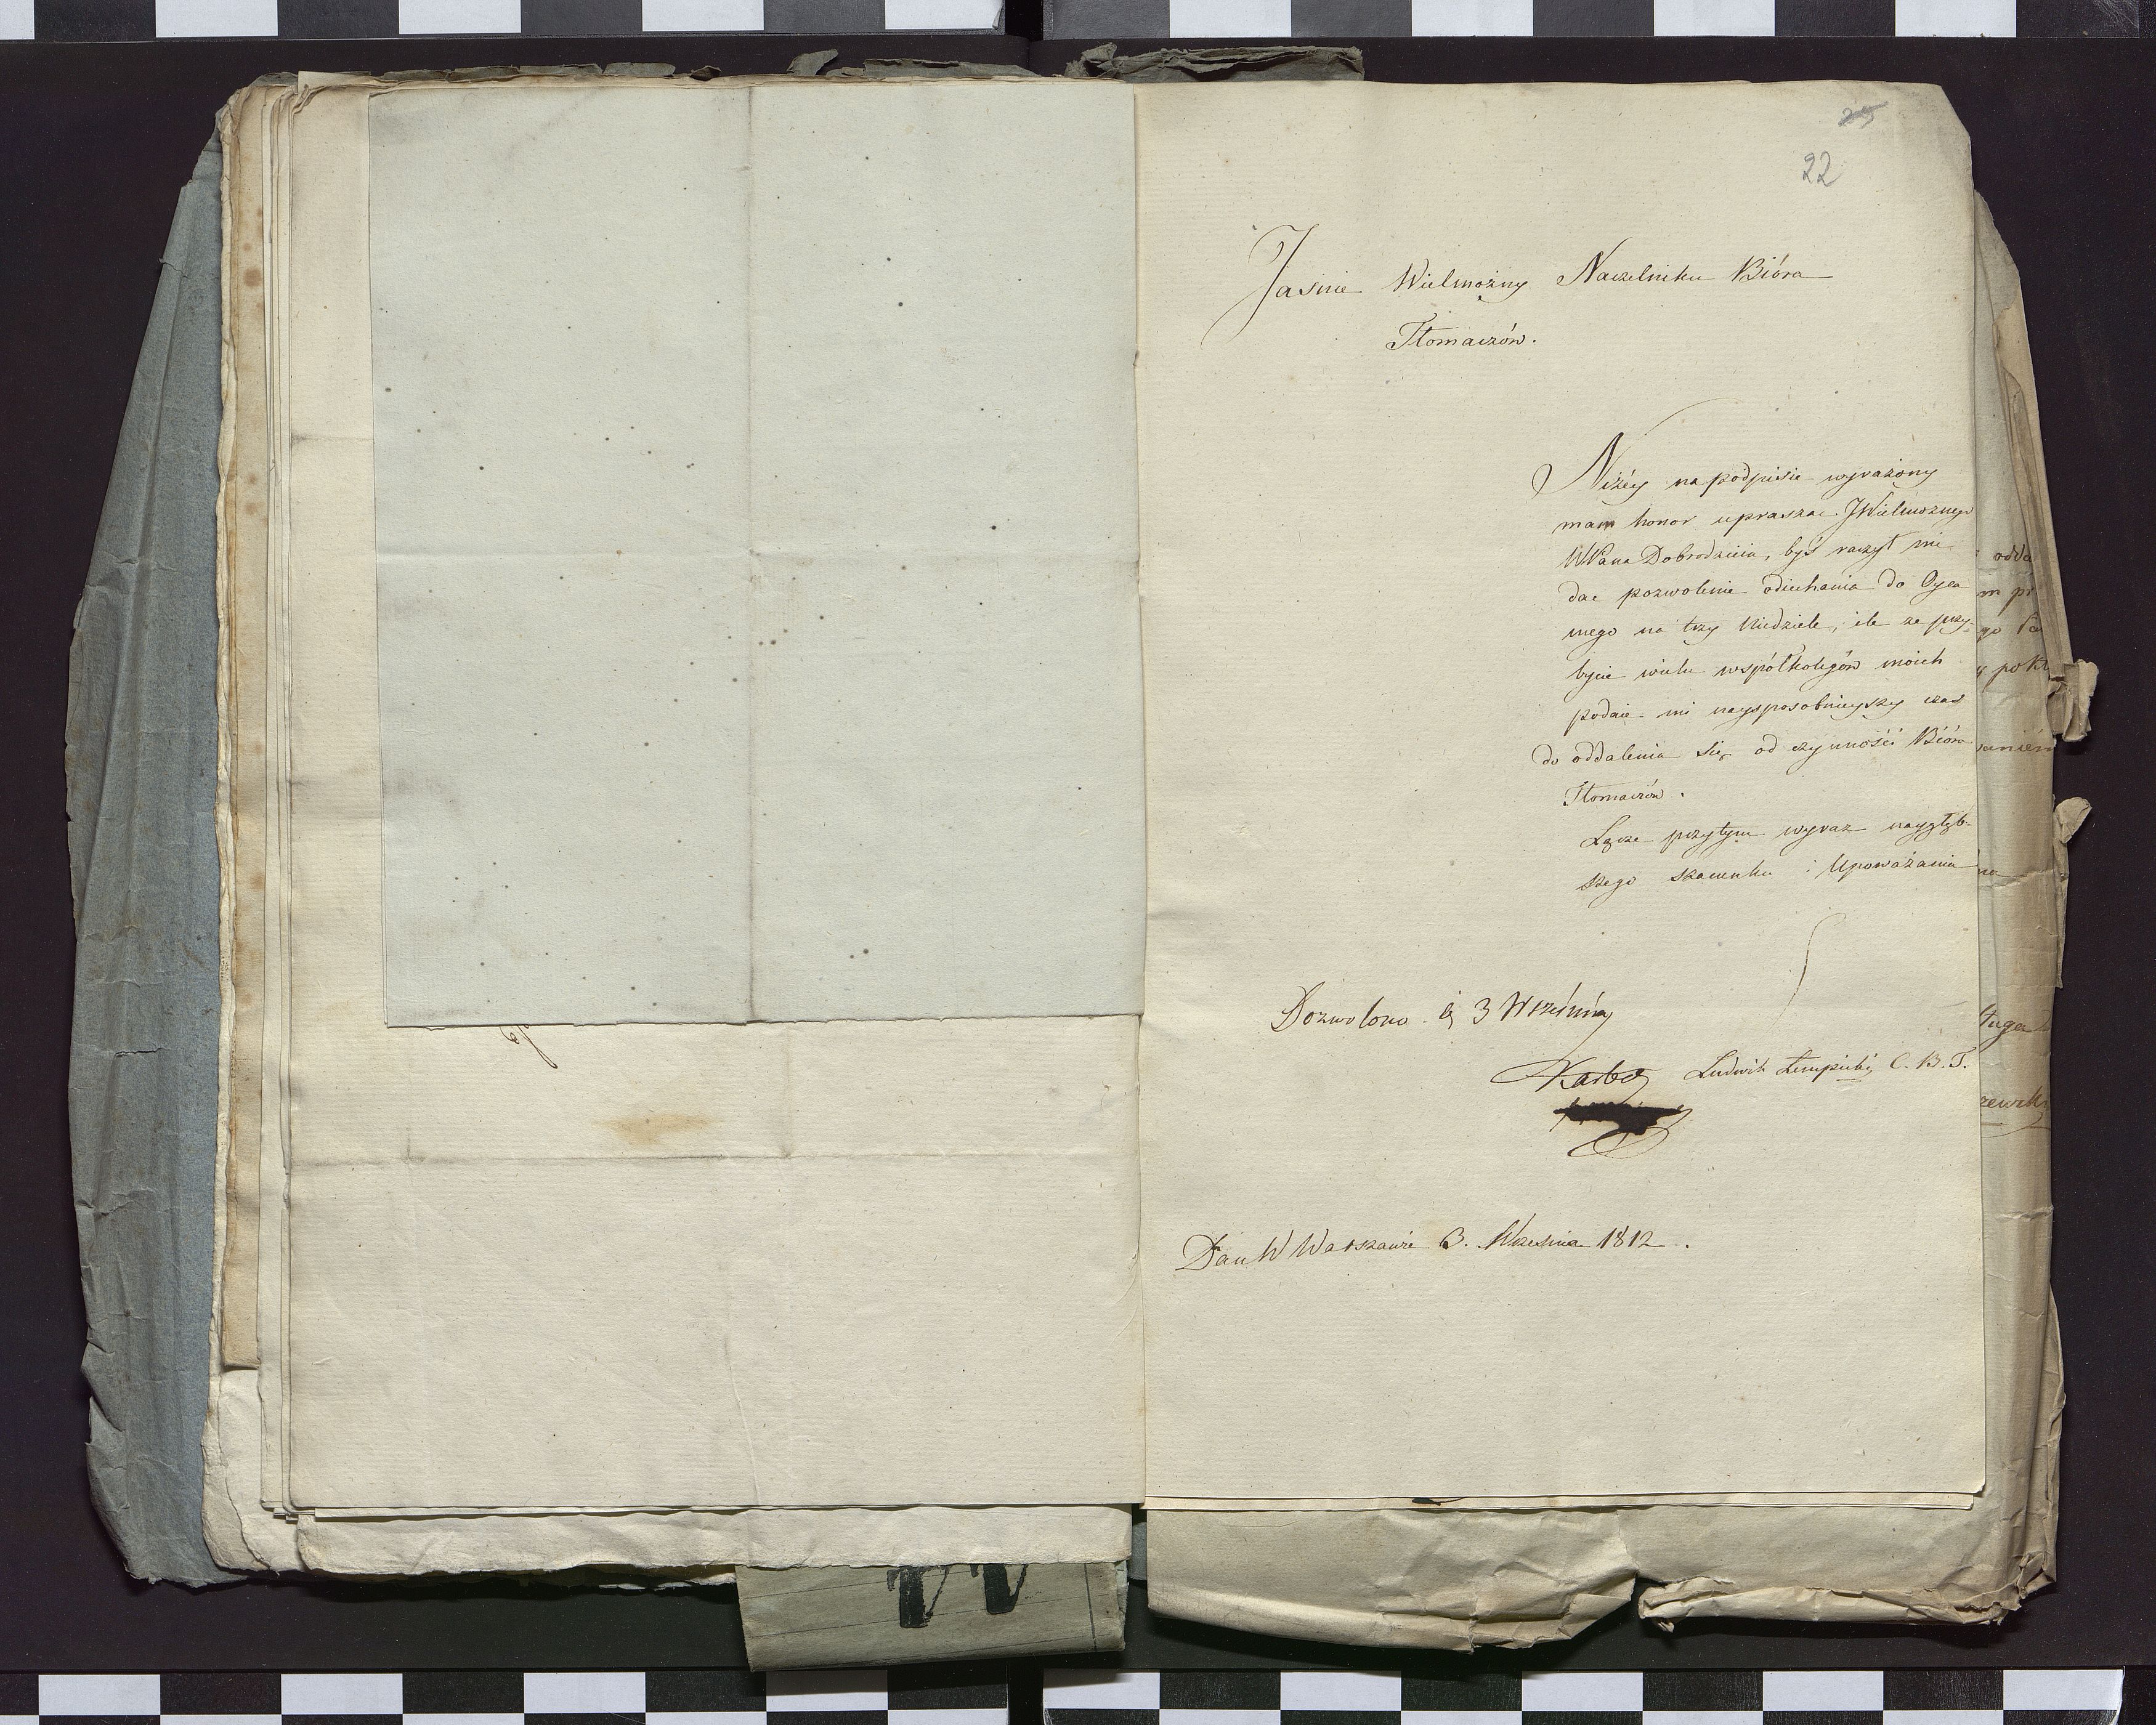 22
Jasnie Wielmożny Naczelniku Bióra
Tłomaczów.
Niżey na podpisie wyrażony
mam honor upraszac JWielmożnego
WPana Dobrodzieia, byś raczył mi
dac pozwolenie odiechania do Oyca
mego na trzy Niedziele, ile ze przy-
bycie wielu współkolegów moich
podaie mi naysposobnieyszy czas
do oddalenia się od czynności Bióra
Tłomaczów.
Łącze przytym wyraz naygłęb-
szego szacunku i Upoważania
Dozwolono d. 3 Wrześnią
Ludwik Łempicki C. B. T.
Dan W Warszawie 3. Wrzesnia 1812.